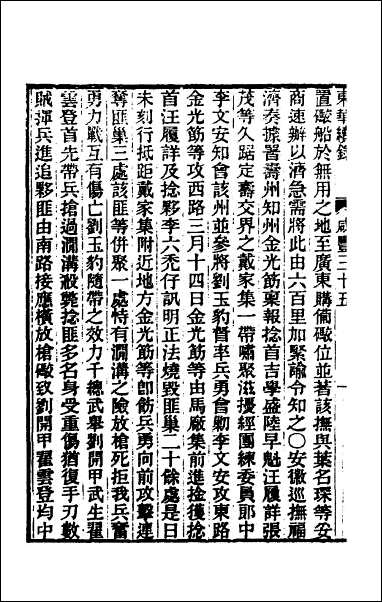 東華續錄　咸豐三十五　一
置礮船於無用之地至廣東購備礮位並著該撫與葉名琛等妥
商速辦以濟急需將此由六百里加緊諭令知之○安徽巡撫福
濟奏據署壽州知州金光筯稟報捻首吉學盛陸早魁汪履詳張
茂等久踞定壽交界之戴家集一帶嘯聚滋擾經團練委員郎中
李文安知會該州並參將劉玉豹督率兵勇會勦李文安攻東路
金光筯等攻西路三月十四日金光筯等由馬廠集前進捡獲捻
首汪履詳及捻夥李六禿仔訊明正法燒毀匪巢二十餘處是日
未刻行抵距戴家集附近地方金光筯等卽飭兵勇向前攻擊連
奪匪巢三處該匪等併聚一處恃有澗溝之險放槍死拒我兵奮
勇力戰互有傷亡劉玉豹隨帶之效力千總武舉劉開甲武生翟
雲登首先帶兵搶過澗溝殺斃捻匪多名身受重傷猶復手刃數
賊揮兵進追夥匪由南路接應橫放槍礮致劉開甲翟雲登均中